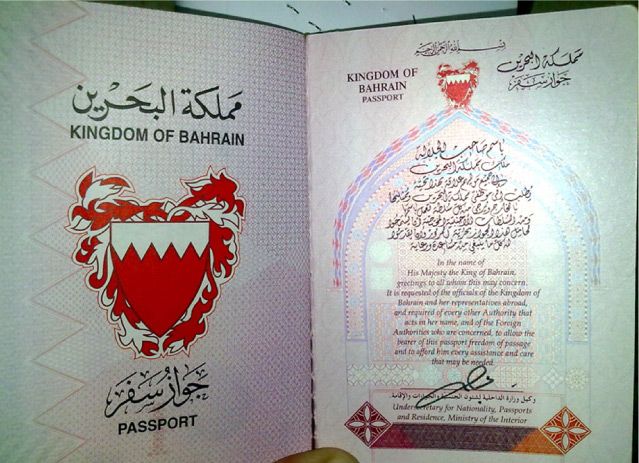 مملكة البحرين
KINGDOM OF BAHRAIN
جواز سفر
PASSPORT
بسم الله الرحمن الرحيم
KINGDOM OF
BAHRAIN
PASSPORT
مملكة البحرين
جواز سفر
باسم صاحب الجلالة
ملك مملكة البحرين
نطلب إلى موظفي مملكة البحرين وممثليها
In the name of
His Majesty the King of Bahrain,
greetings to all whom this may concern.
It is requested of the officials of the Kingdom of
Bahrain and her representatives abroad,
and required of every other Authority that
acts in her name, and of the Foreign
Authorities who are concerned, to allow the
bearer of this passport freedom of passage
and to afford him every assistance and care
that may be needed.
وكيل وزارة الداخلية لشئون الجنسية والجوازات والإقامة
Undersecretary for Nationality, Passports
and Residence, Ministry of the Interior